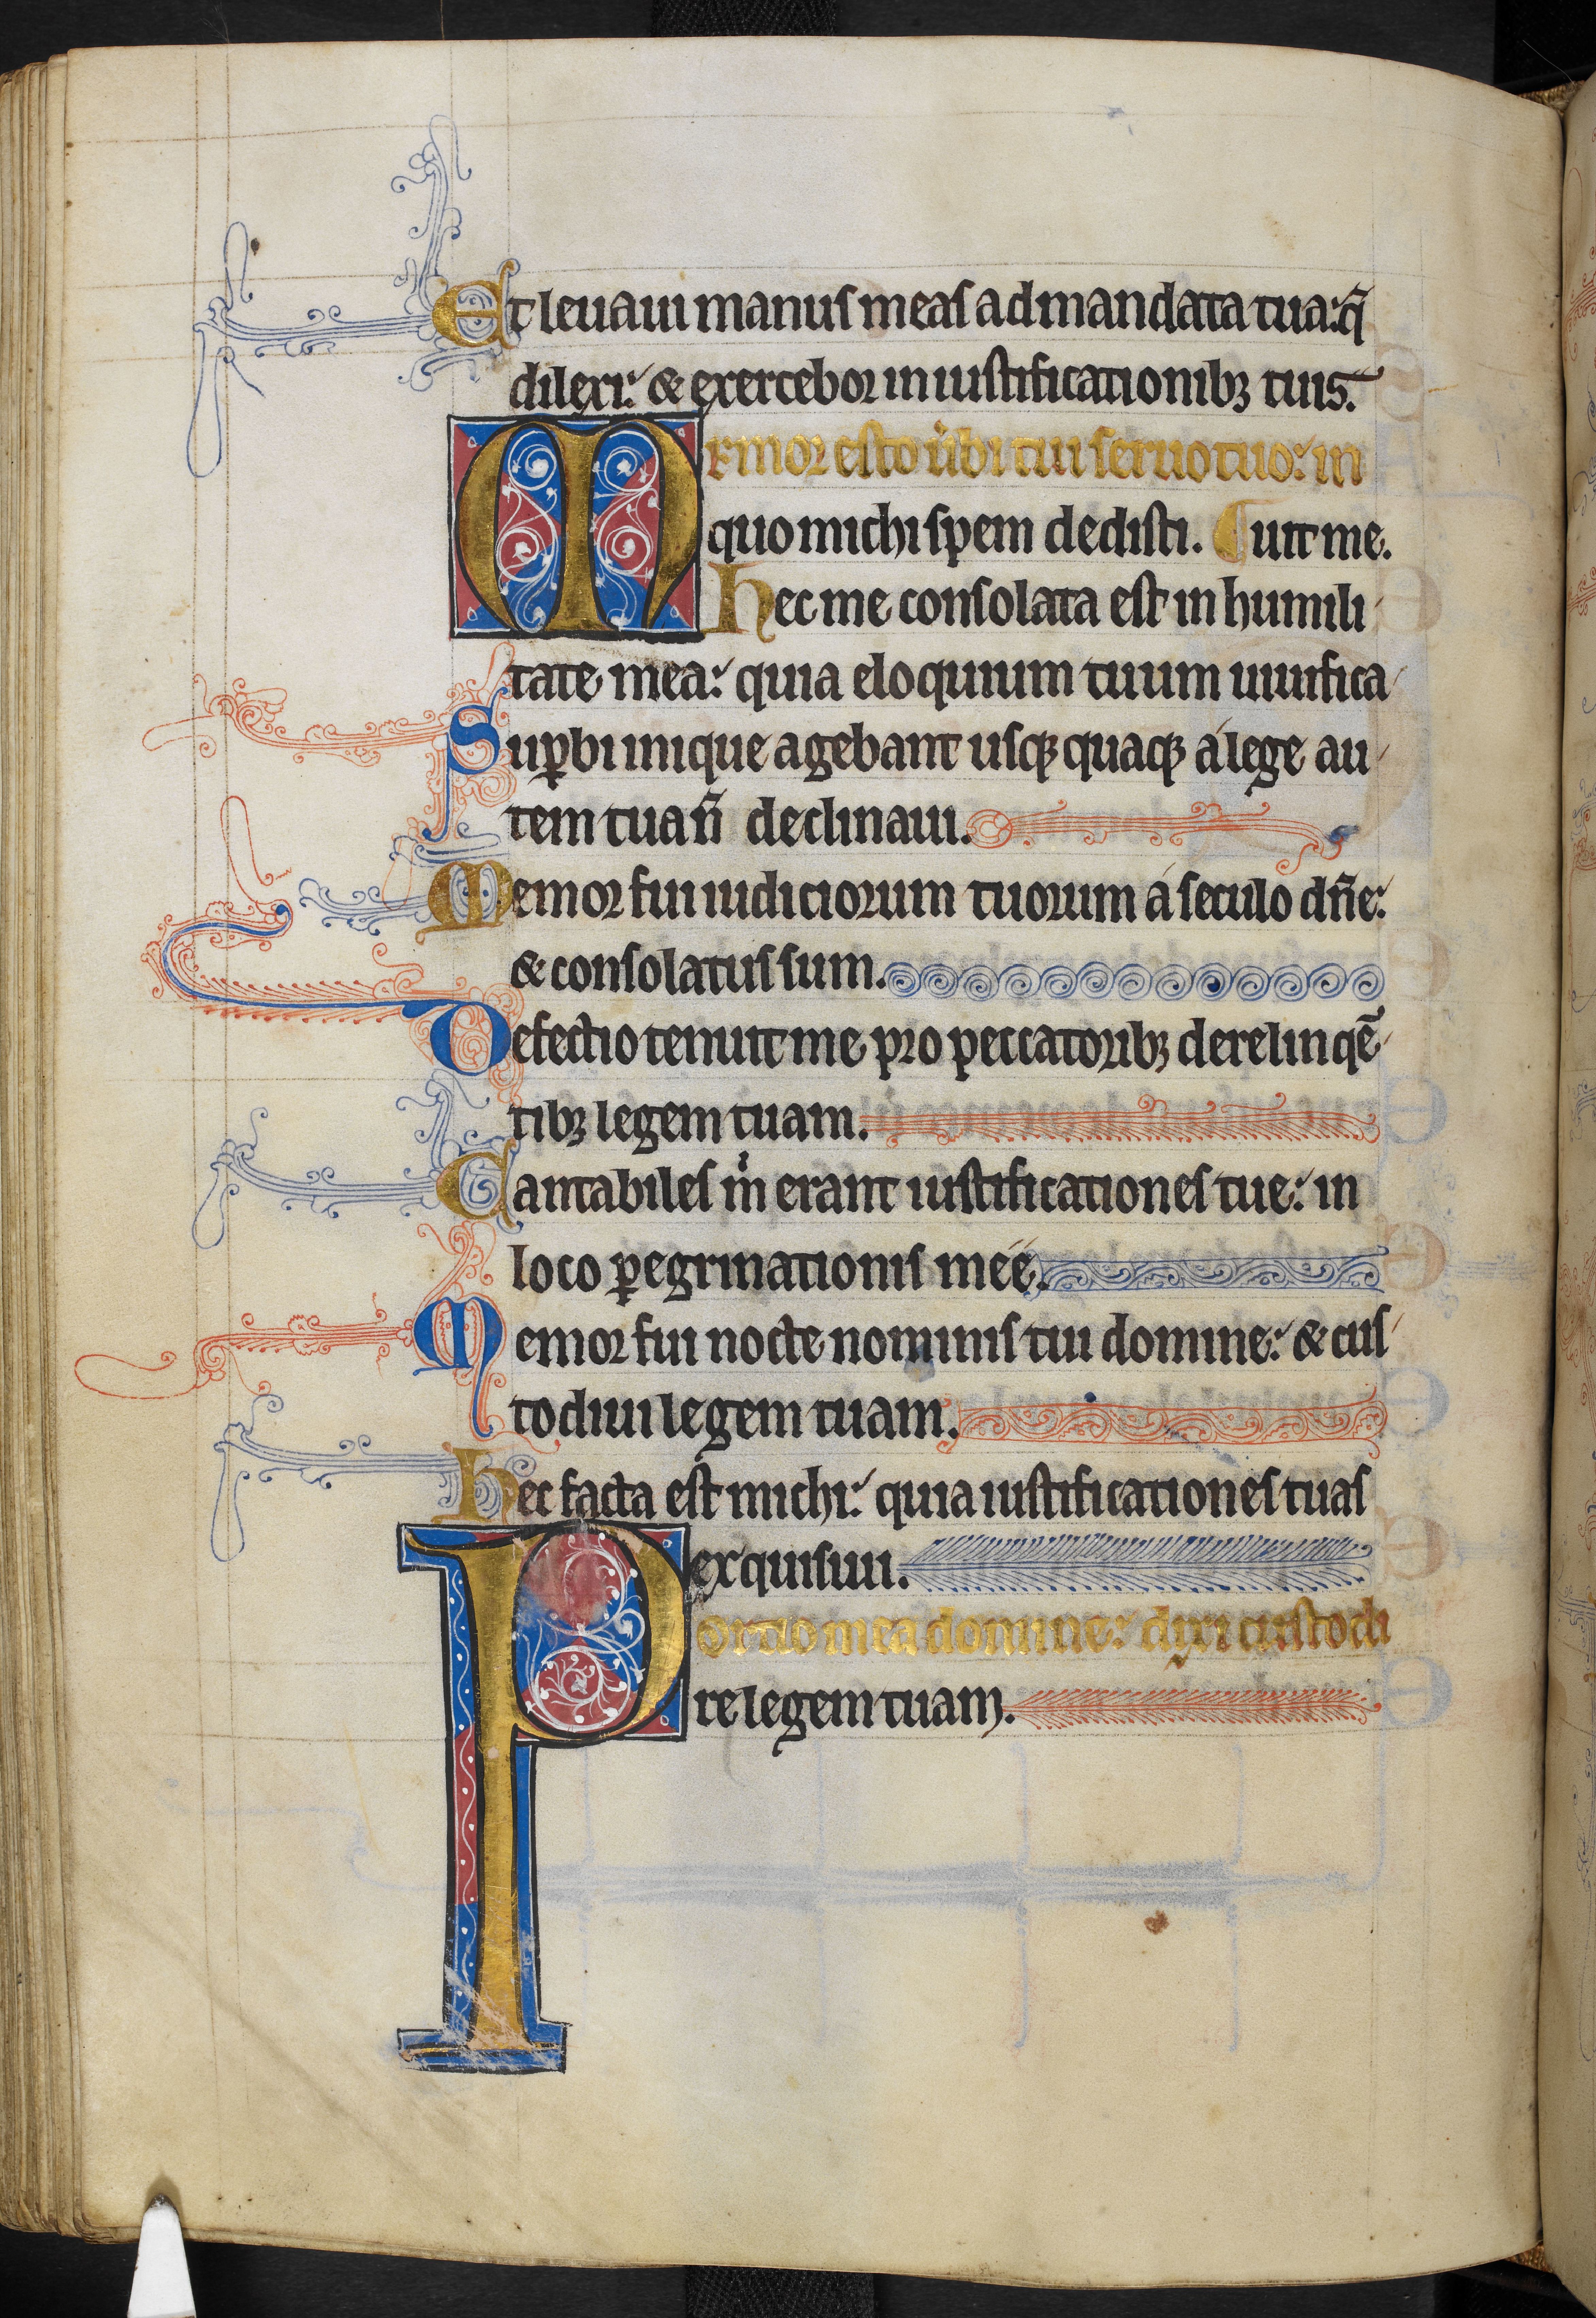 Et leuaui manus meas ad mandata tua: q̄
dilexi: & exercebor in iustificationibꝫ tuis.
Memor esto ùbi tui seruo tuo: in
quo michi spem dedisti. ¶ uit me.
hec me consolata est in humili
tate mea: quia eloquium tuum uiuifica
Suꝑbi inique agebant usqꝫ quaqꝫ á lege au
tem tua ñ declinaui.
Memor fui iudiciorum tuorum á seculo dñe:
& consolatus sum.
Defectio tenuit me pro peccatoribꝫ derelinqē
tibꝫ legem tuam.
Cantabiles m̉ erant iustificationes tue: in
loco ꝑegrinationis meé.
Memor fui nocte nominis tui domine: & cus
todiui legem tuam.
hec facta est michi: quia iustificationes tuas
exquisiui.
Portio mea domine: dixi custodi
re legem tuam.